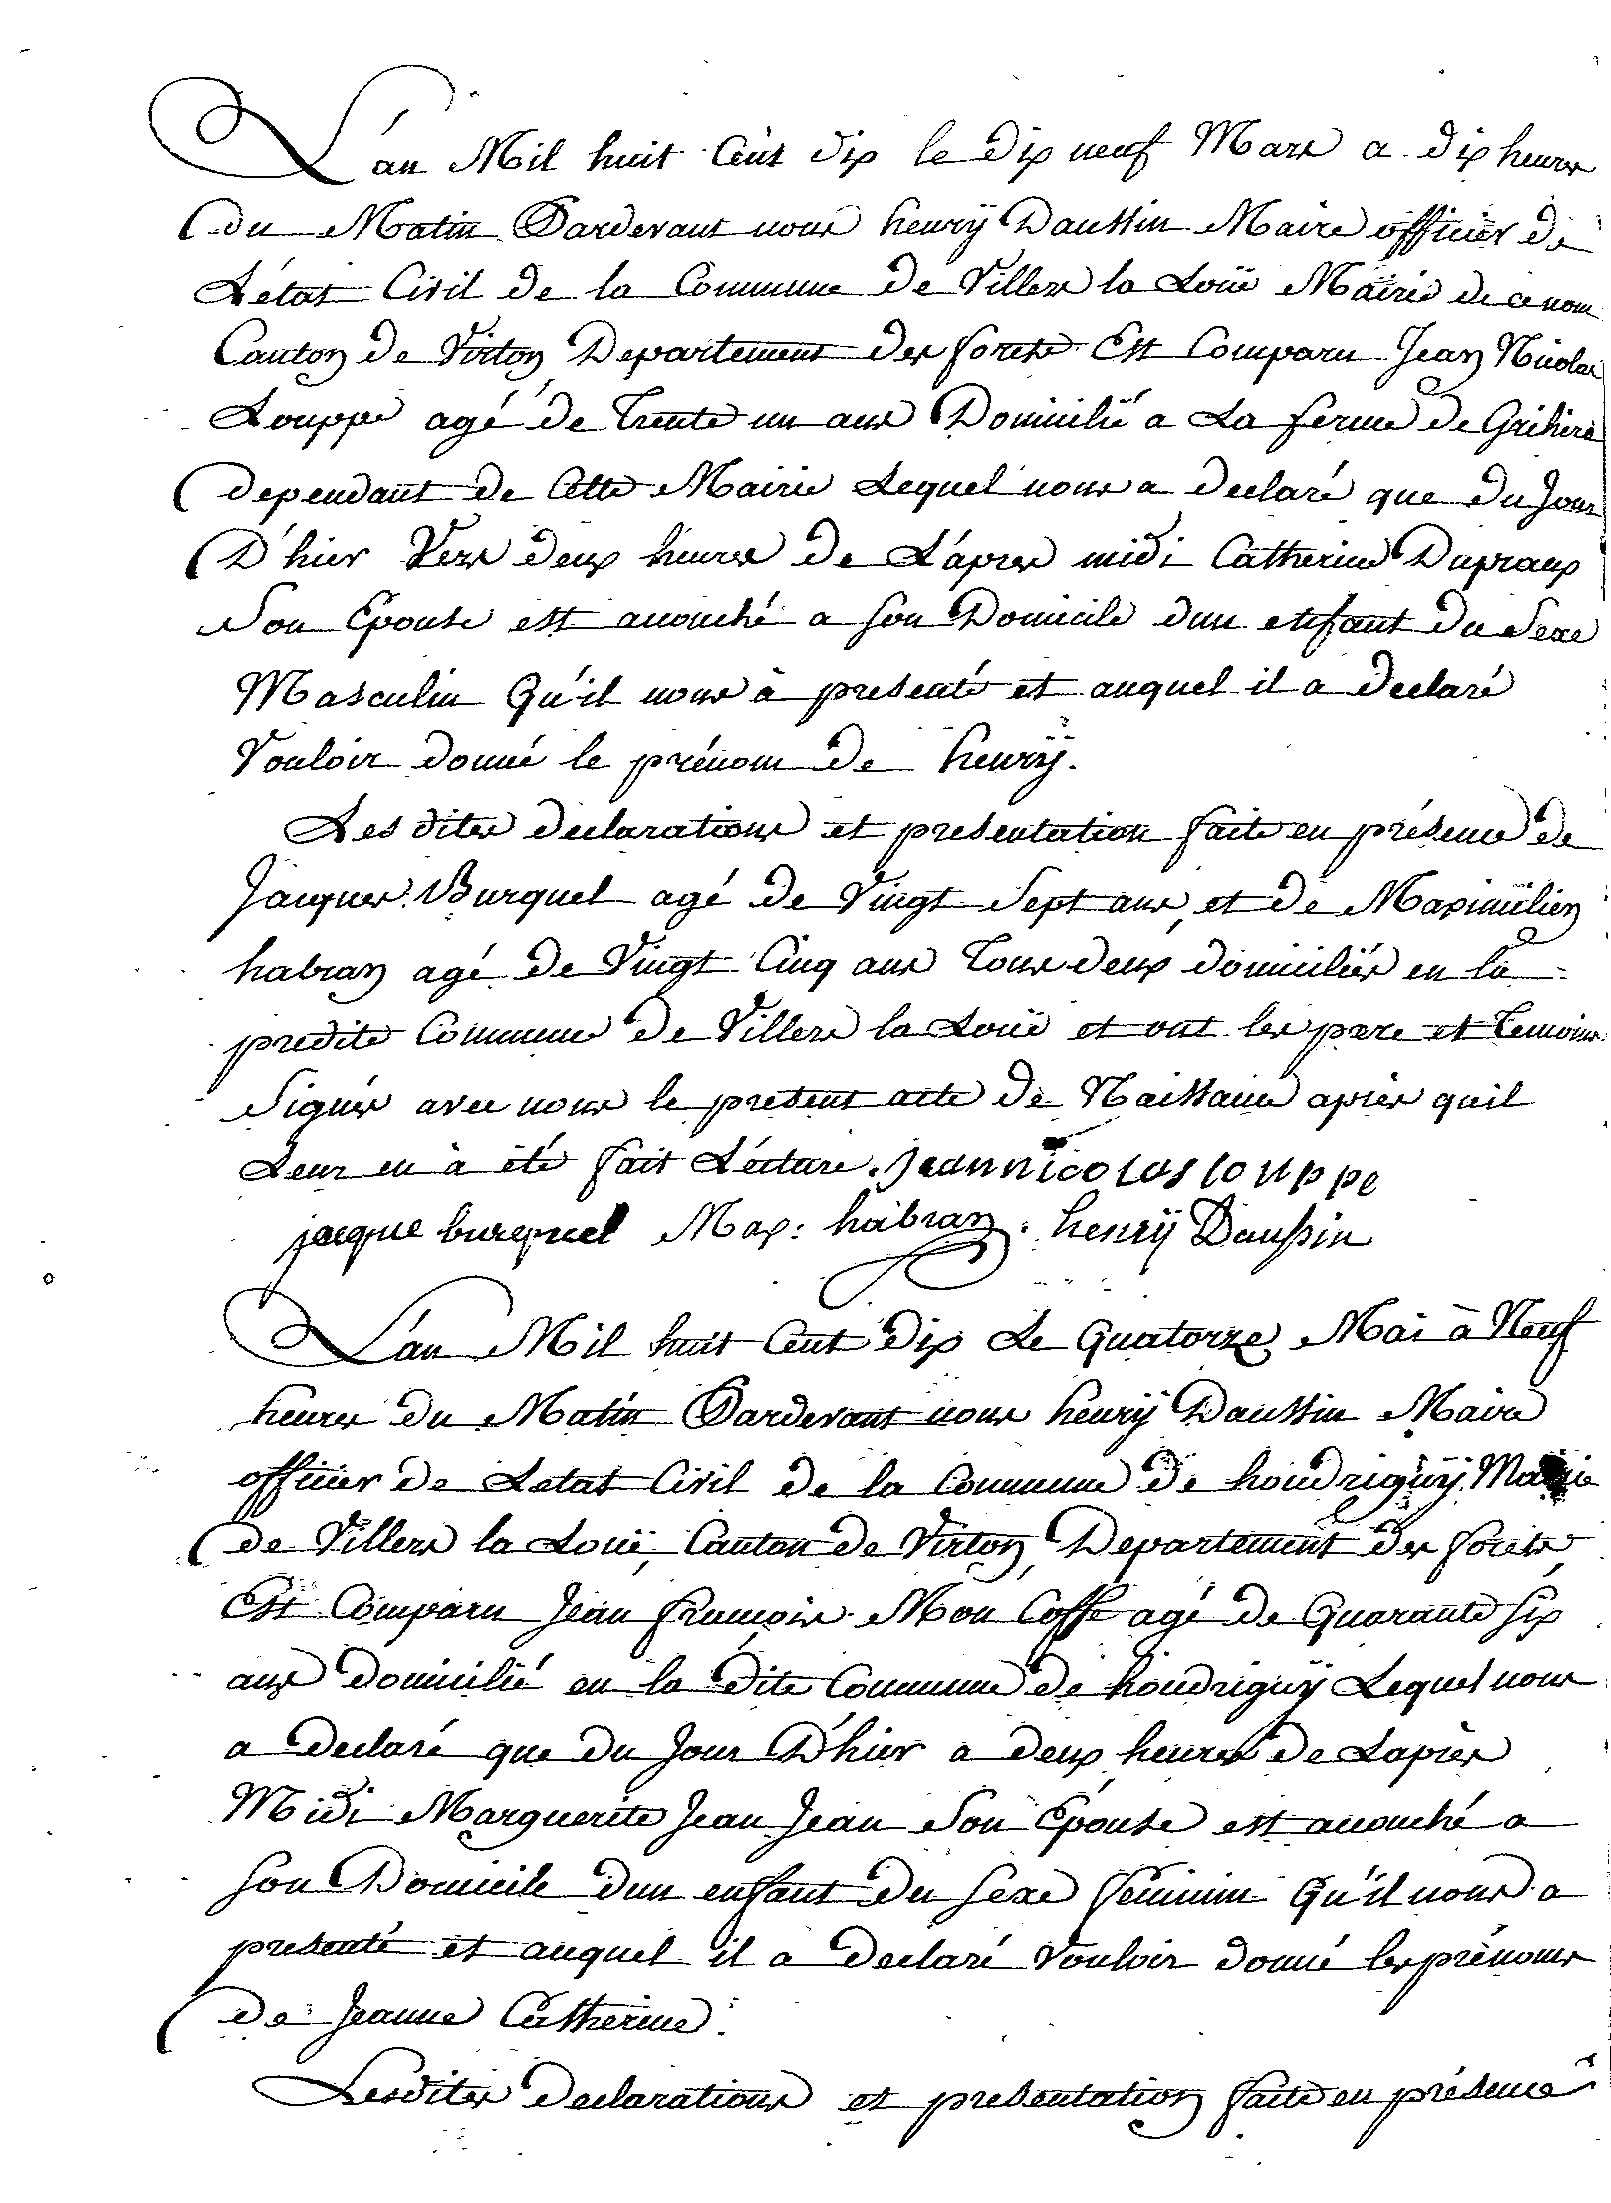 L'an Mil huit Cent dix le dix neuf Mars a dix heures
du Matin Pardevant nous henrÿ Daussin Maire officier de
L'état Civil de la Commune de Villers la Loüe Mairie de ce nom
Canton de Virton Departement des forets Est Comparu Jean Nicolas
Louppe agé de Trente un ans Domicilié a La ferme de
dependant de Cette Mairie Lequel nous a declaré que du Jour
D'hier Vers deux heures de L'apres midi Catherine Dupraux
Son Epouse est accouché a Son Domicile dun enfant du Sexe
Masculin Qu'il nous à presenté et auquel il a declaré
Vouloir donné le prénom de henrÿ.
Les dites declarations et presentation faite en présence de
Jacques Burquel agé de Vingt Sept ans, et de Maximilien
habran agé de Vingt Cinq ans Tous deux domiciliés en la
predite Commune de Villers la Loüe et ont les pere et temoins
Signés avec nous le present acte de Naissance après quil
Leur en à été fait Lecture. jean nicolas louppe
jacque burquel Max: habran. henrÿ Daussin
L'an Mil huit Cent dix Le Quatorze Mai à Neuf
heures du Matin Pardevant nous henrÿ Daussin Maire
officier de Letat Civil de la Commune de houdrigny Mairie
de Villers la Loüe, Canton de Virton, Departement des forets,
Est Comparu Jean francois Mon Coffe agé de Quarante Six
ans domicilié en la dite Commune de houdrigny Lequel nous
a declaré que du Jour D'hier a deux heures de Lapres
Midi Marguerite Jean Jean Son Epouse est accouché a
Son Domicile dun enfant du Sexe feminin Qu'il nous a
presenté et auquel il a declaré Vouloir donné les prénoms
de Jeanne Catherine.
Lesdites declarations et presentation faite en présence